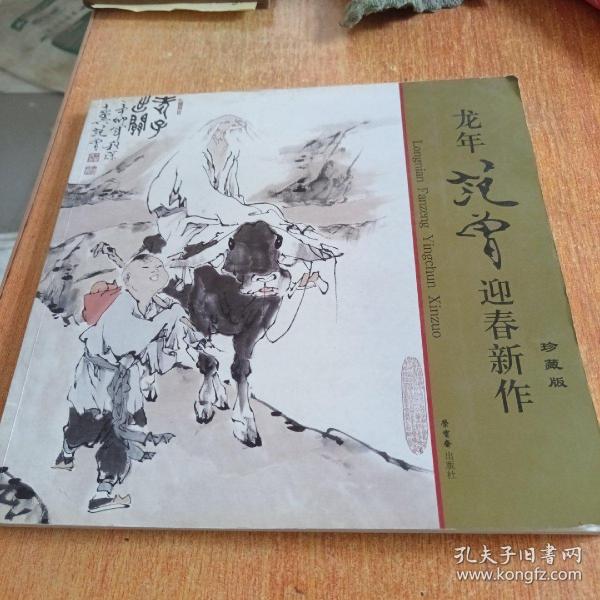 老子
出關
龙年
范曾
迎春新作
Longnian Fanzeng Yingchun Xinzuo
珍藏版
荣宝斋出版社
孔夫子旧书网
www.kongfz.com